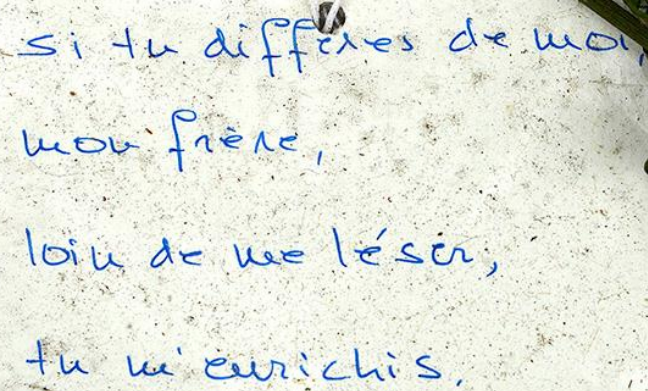 si tu diffères de moi,
mon frère,
loin de me léser,
tu m'enrichis.